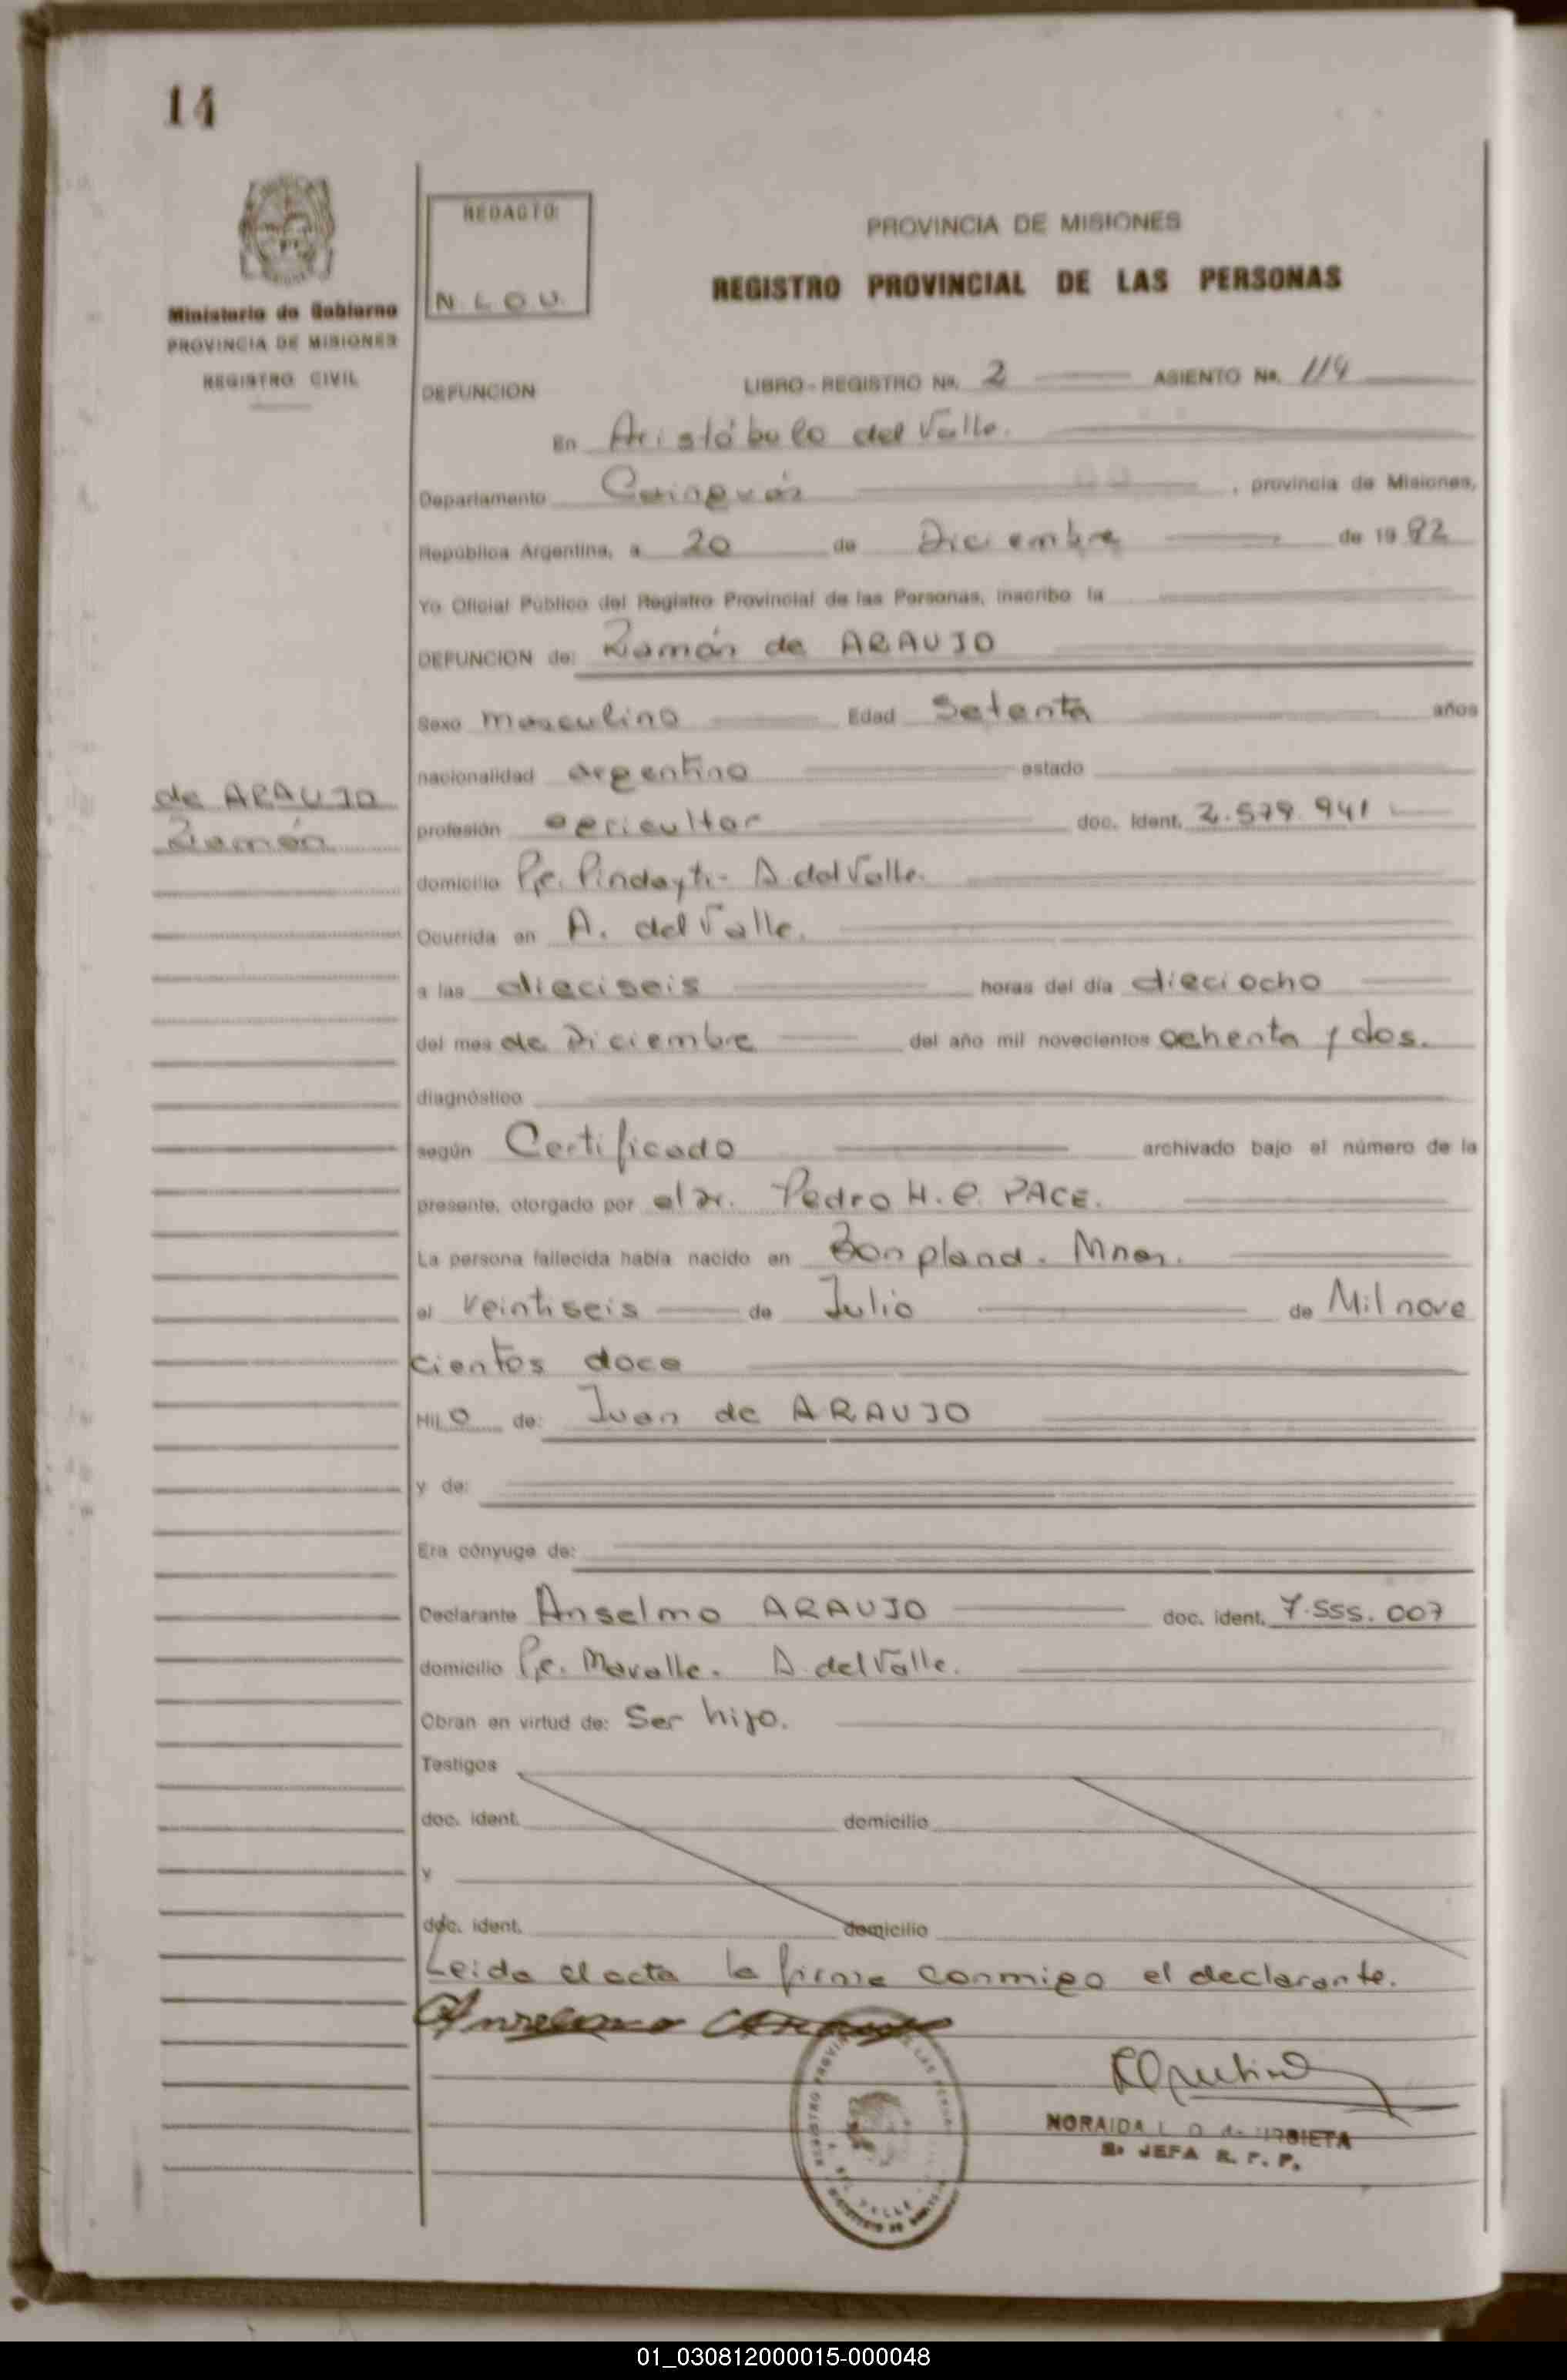 14
REDACTO:
N. L. O. U.
Ministerio de Gobierno
PROVINCIA DE MISIONES
REGISTRO CIVIL
PROVINCIA DE MISIONES
REGISTRO PROVINCIAL DE LAS PERSONAS
DEFUNCION LIBRO - REGISTRO No. 2 ASIENTO No. 114
En Aristóbulo del Valle.
Departamento Cainguás , provincia de Misiones,
República Argentina, a 20 de Diciembre de 19 82
Yo Oficial Público del Registro Provincial de las Personas, inscribo la
DEFUNCION de: Ramón de ARAUJO
Sexo masculino Edad Setenta años
nacionalidad argentino estado
de ARAUJO
Ramón
profesión agricultor doc. ident. 2.579.941
domicilio Pje. Pindayti - A. del Valle.
Ocurrida en A. del Valle.
a las dieciseis horas del día dieciocho
del mes de Diciembre del año mil novecientos ochenta y dos.
diagnóstico
según Certificado archivado bajo el número de la
presente, otorgado por el Dr. Pedro H. C. PACE.
La persona fallecida había nacido en Bonpland. Mnes.
el veintiseis de Julio de Mil nove
cientos doce
Hij o de: Juan de ARAUJO
y de:
Era cónyuge de:
Declarante Anselmo ARAUJO doc. ident. 7.555.007
domicilio Pje. Mavalle. A. del Valle.
Obran en virtud de: Ser hijo.
Testigos
doc. ident. domicilio
y
doc. ident. domicilio
Leida el acta la firma conmigo el declarante.
Anselmo Araujo
NORAIDA L. O. de URBIETA
JEFA R. P. P.
01_030812000015-000048